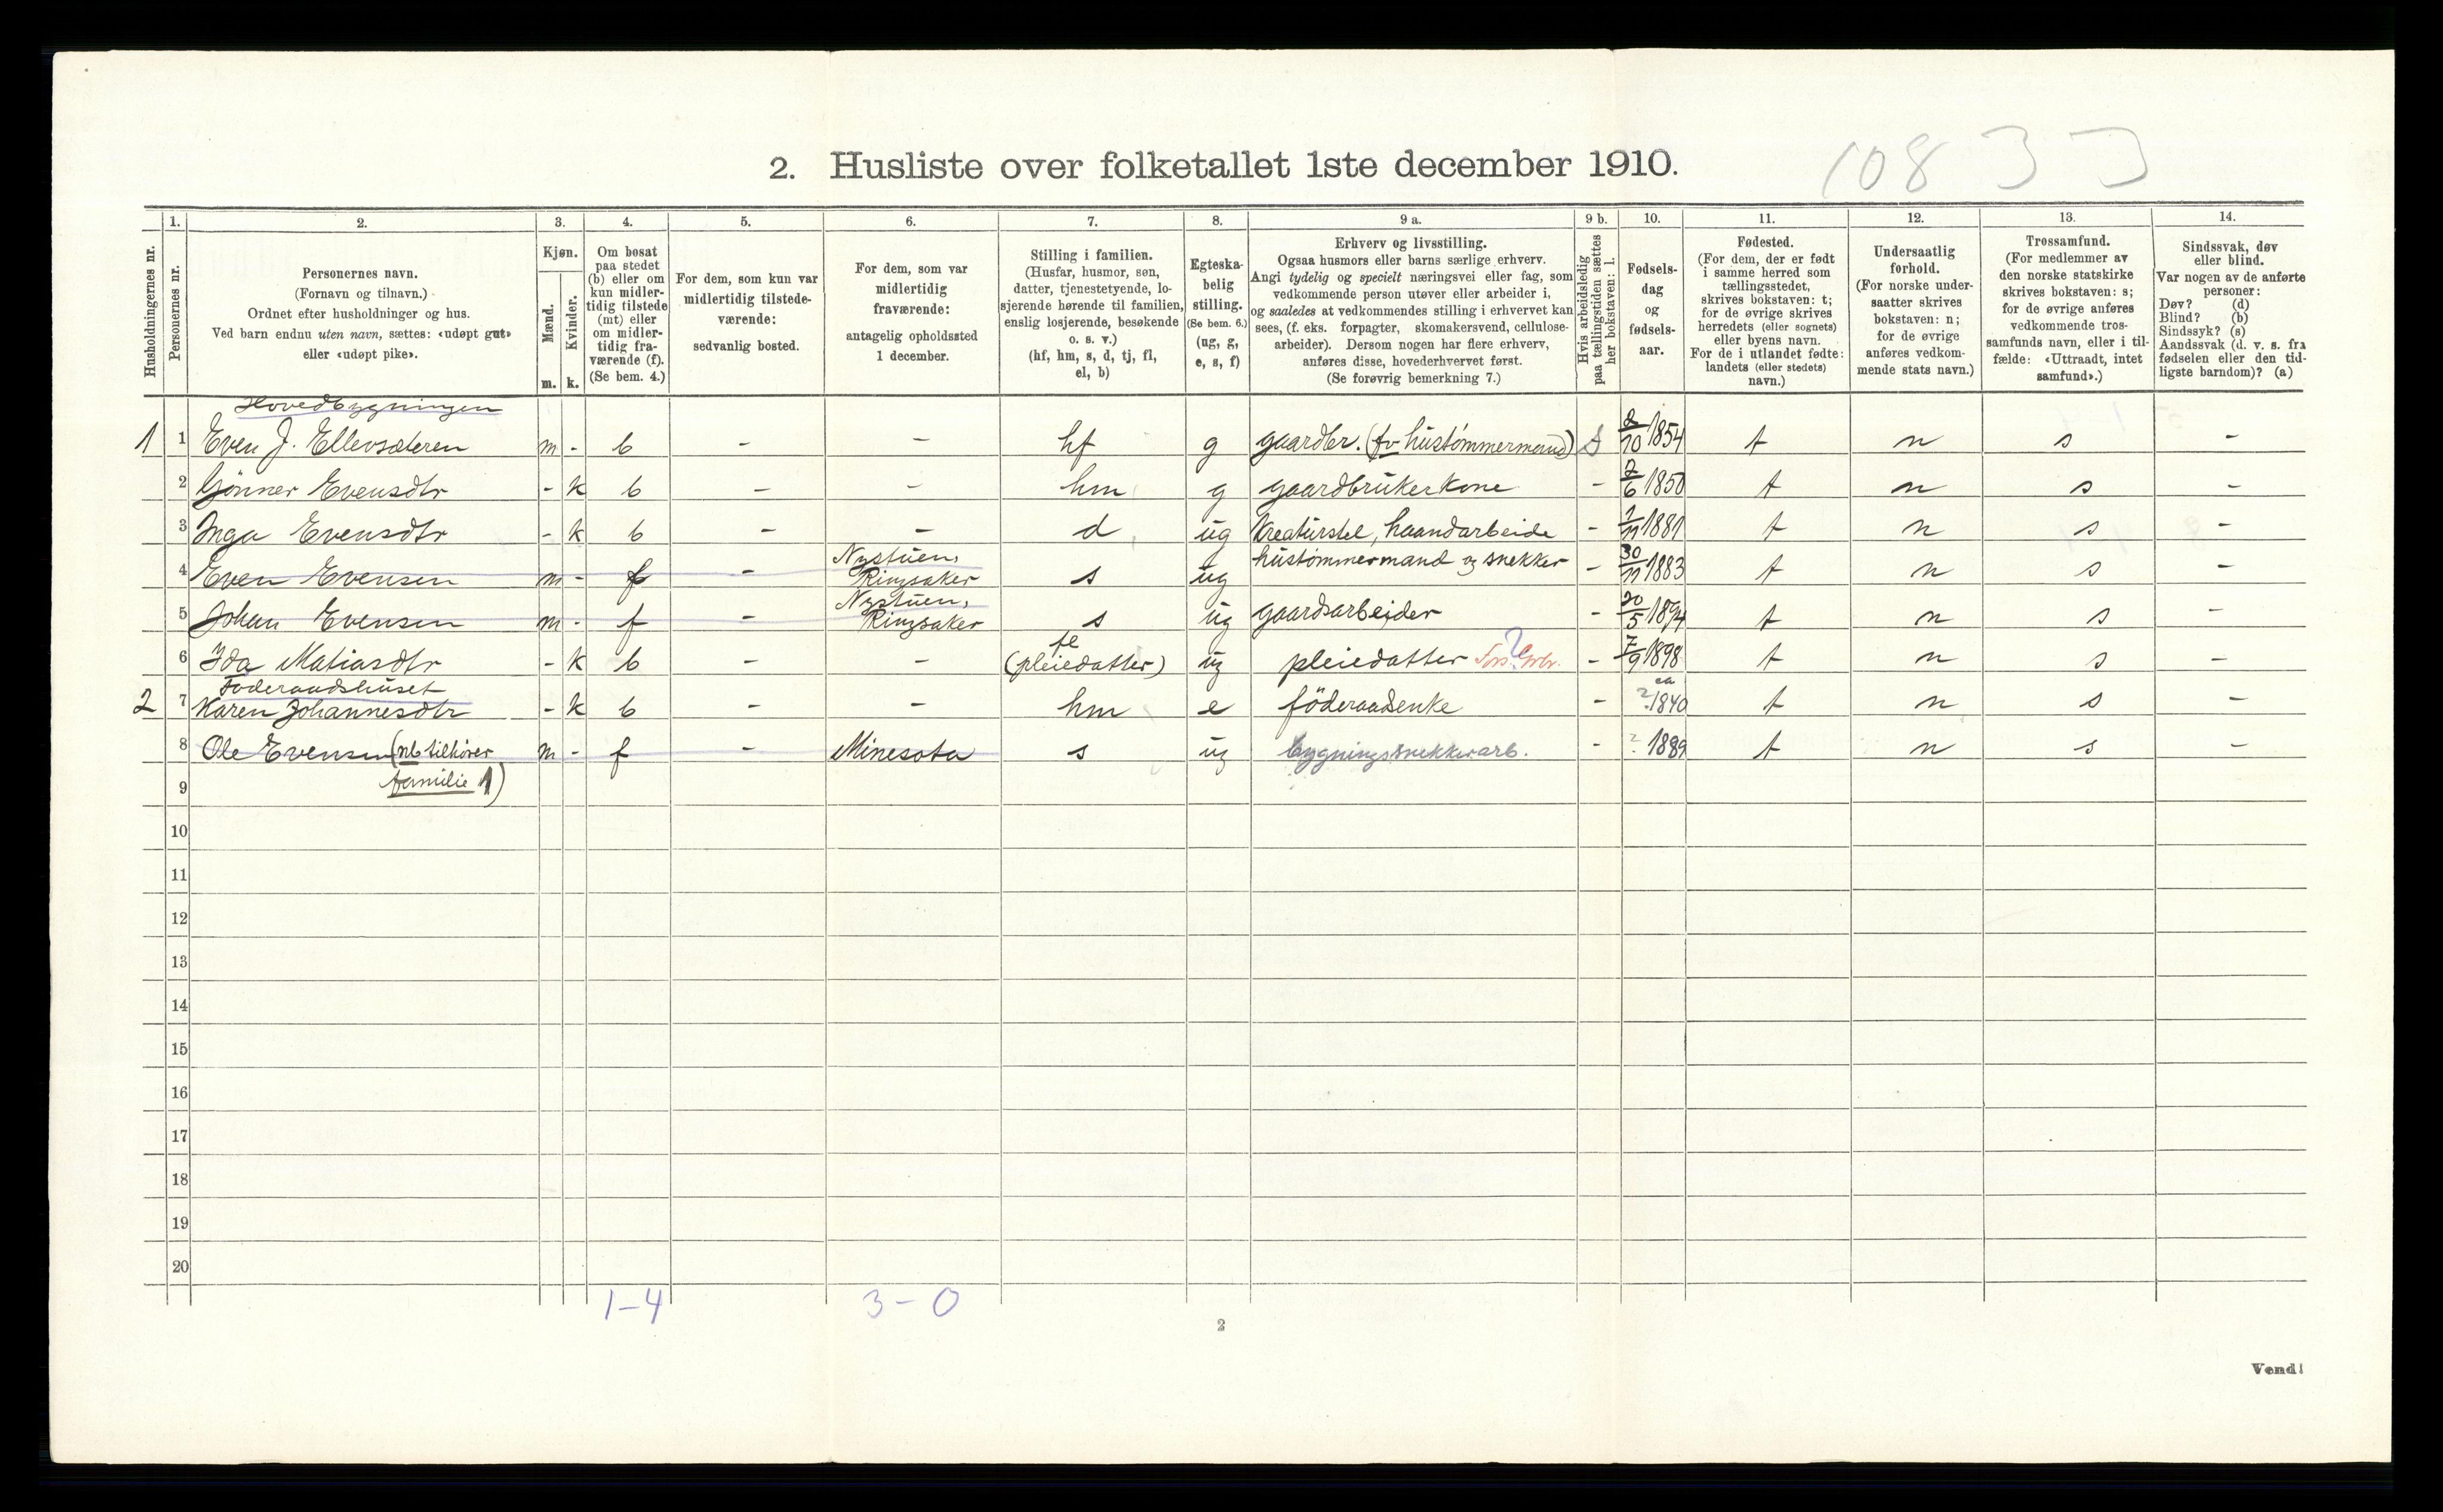 10833
2. Husliste over folketallet 1ste december 1910.
Husholdningernes nr.
1.
Personernes nr.
2.
Personernes navn.
(Fornavn og tilnavn.)
Ordnet efter husholdninger og hus.
Ved barn endnu uten navn, sættes: «udøpt gut»
eller «udøpt pike».
3.
Kjøn.
Mænd.
Kvinder.
m. k.
4.
Om bosat
paa stedet
(b) eller om
kun midler-
tidig tilstede
(mt) eller
om midler-
tidig fra-
værende (f).
(Se bem. 4.)
5.
For dem, som kun var
midlertidig tilstede-
værende:
sedvanlig bosted.
6.
For dem, som var
midlertidig
fraværende:
antagelig opholdssted
1 december.
7.
Stilling i familien.
(Husfar, husmor, søn,
datter, tjenestetyende, lo-
sjerende hørende til familien,
enslig losjerende, besøkende
o. s. v.)
(hf, hm, s, d, tj, fl,
el, b)
8.
Egteska-
belig
stilling.
(Se bem. 6.)
(ug, g,
e, s, f)
9 a.
Erhverv og livsstilling.
Ogsaa husmors eller barns særlige erhverv.
Angi tydelig og specielt næringsvei eller fag, som
vedkommende person utøver eller arbeider i,
og saaledes at vedkommendes stilling i erhvervet kan
sees, (f. eks. forpagter, skomakersvend, cellulose-
arbeider). Dersom nogen har flere erhverv,
anføres disse, hovederhvervet først.
(Se forøvrig bemerkning 7.)
9 b.
Hvis arbeidsledig
paa tællingstiden sættes
her bokstaven: l.
10.
Fødsels-
dag
og
fødsels-
aar.
11.
Fødested.
(For dem, der er født
i samme herred som
tællingsstedet,
skrives bokstaven: t;
for de øvrige skrives
herredets (eller sognets)
eller byens navn.
For de i utlandet fødte:
landets (eller stedets)
navn.)
12.
Undersaatlig
forhold.
(For norske under-
saatter skrives
bokstaven: n;
for de øvrige
anføres vedkom-
mende stats navn.)
13.
Trossamfund.
(For medlemmer av
den norske statskirke
skrives bokstaven: s;
for de øvrige anføres
vedkommende tros-
samfunds navn, eller i til-
fælde: «Uttraadt, intet
samfund».)
14.
Sindssvak, døv
eller blind.
Var nogen av de anførte
personer:
Døv? (d)
Blind? (b)
Sindssyk? (s)
Aandssvak (d. v. s. fra
fødselen eller den tid-
ligste barndom)? (a)
Hovedbygningen
1 1 Even J. Ellevsæteren m - b - - hf g gaardbr. (fv hustømmermand) 2/10 1854 t n s -
2 Gønner Evensdtr - k b - - hm g gaardbrukerkone - 2/6 1850 t n s -
3 Inga Evensdtr - k b - - d ug Kreaturstel, haandarbeide - 1/11 1881 t n s -
4 Even Evensen m - f - Nystuen, Ringsaker s ug hustømmermand og snekker - 30/11 1883 t n s -
5 Johan Evensen m - f - Nystuen, Ringsaker s ug gaardsarbeider - 20/5 1894 t n s -
6 Ida Matiasdtr - k b - - fl (pleiedatter) ug pleiedatter - 7/9 1898 t n s -
Føderaadshuset
2 7 Karen Johannesdtr - k b - - hm e föderaadenke - ca ? 1840 t n s -
8 Ole Evensen (nb tilhører m - f - Minesota s ug bygningssnekkerarb. - ? 1889 t n s -
9 familie 1)
10
11
12
13
14
15
16
17
18
19
20
1-4 3-0
2
Vend!